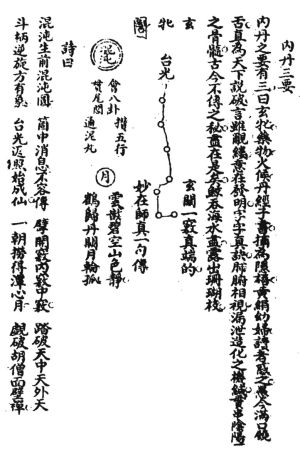 內丹三要
內丹之要有三曰玄牝藥物火候丹經子書摘為隱語黃絹幼婦讀者惑之愚今滿口饒
舌直為天下說破言雖覼縷意在發明字字真訣肺腑相視漏泄造化之機緘貫串陰陽
之骨髓古今不傳之秘盡在是矣鯨吞海水盡露出珊瑚枝
玄牝圖
台光
玄關一竅真端的
妙在師真一句傳
混
會八卦
貫尾閭
攢五行
通泥丸
月
雲散碧空山色靜
鶴歸丹闕月輪孤
詩曰
混沌生前混沌圓 箇中消息不容傳 擘開竅內竅中竅 踏破天中天外天
斗柄逆旋方有象 台光返照始成仙 一朝撈得潭心月 覰破胡僧面壁禪